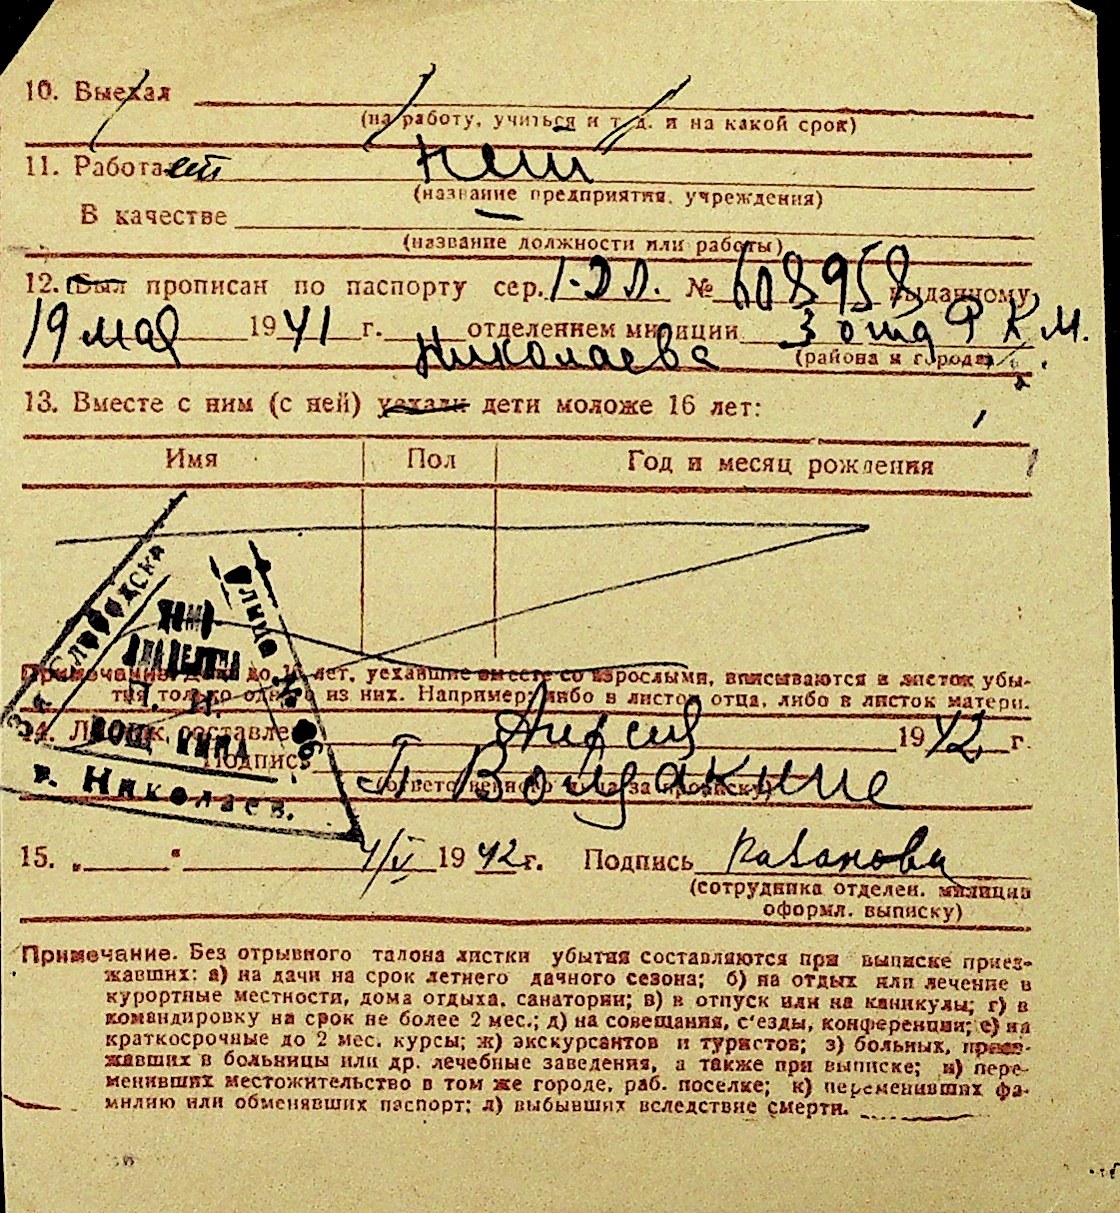 10. Выехал
(на работу, учиться и т. д. и на какой срок)
11. Работает нет
(название предприятия, учреждения)
В качестве —
(название должности или работы)
12. Был прописан по паспорту сер. № 608958 выданному
19 мая 1941 г. отделением милиции 3 отд Р К М.
Николаева (района и города)
13. Вместе с ним (с ней) уехали дети моложе 16 лет:
Имя Пол Год и месяц рождения
Примечание. Дети до 16 лет, уехавшие вместе со взрослыми, вписываются в листок убы-
тия только одного из них. Например: либо в листок отца, либо в листок матери.
14. Листок составлен 1942 г.
Подпись
(ответственного лица за прописку)
Слободска
улица № 66
домо
владелица
П. И.
г. Николаев.
15. „ “ 4/V 1942 г. Подпись
(сотрудника отделен. милиции
оформл. выписку)
Примечание. Без отрывного талона листки убытия составляются при выписке приез-
жавших: а) на дачи на срок летнего дачного сезона; б) на отдых или лечение в
курортные местности, дома отдыха, санатории; в) в отпуск или на каникулы; г) в
командировку на срок не более 2 мес.; д) на совещания, с'езды, конференции; е) на
краткосрочные до 2 мес. курсы; ж) экскурсантов и туристов; з) больных, приез-
жавших в больницы или др. лечебные заведения, а также при выписке; и) пере-
менивших местожительство в том же городе, раб. поселке; к) переменивших фа-
милию или обменявших паспорт; л) выбывших вследствие смерти.